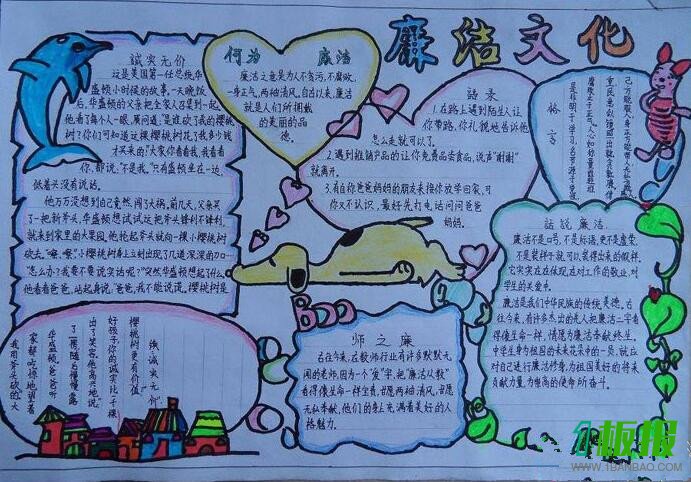 廉洁文化
誠实无价
这是美国第一任总统华
盛顿小时候的故事。一天晚饭
后，华盛顿的父亲把全家人召是到一起，
他看了每个人一眼，厲问道:"是谁砍了我的樱桃
树?你们可知道这棵樱桃树花了我多少钱
才买来的"大家你看看我,我看看
你,都说:"不是我."只有盛顿坐在一边,
低着头没有说话。
他万万没想到自己竟然，闯了大祸。前几天，父亲买
了一把新斧头,华盛顿想试试这把斧头锋利不锋利,
就来到家里的大果园。他抡起斧头就向一棵小樱桃树
砍去。"嚓,嚓"小樱桃树身上立刻出现了几道深深的刀口
"怎么办?我要不要说实话呢?"突然华盛顿想起了什么,
他看着爸爸,站起身说,"爸爸,我不能说谎。樱桃树是
我用斧头砍的"大
家都吃惊地望着
华盛顿,爸爸听
了,
出了笑容,他高兴地说:
好孩子,你的诚实比一千棵
樱桃树更有价值"
诚实无价
何为廉洁
廉洁之意是为人不贪污,不腐败,
一身正气,两袖清风,自古以来,廉洁
就是人们所拥戴
的美丽的品
德。
語录
1.在路上遇到陌生人让
你带路,你礼貌地告诉他
怎么走就可以了。
2.遇到推销产品的让你免费品尝食品,说声"谢谢"
就离开。
3.有自称爸爸妈妈的朋友来接你放学回家,可
你又不认识,最好先打电话问问爸爸
妈妈。
格言
話说廉洁
廉洁不是口号,不是标语,更不是虚荣,
不是装样子就可以装得出来的假样。
它实实在在体现,在对工作的敬业,对
学生的关爱中。
廉洁是我们中华民族的传统美德。古
往今来,有许多杰出的先人把廉洁二字看
得像生命一样,情愿为廉洁奉献终生。
中学生身为祖国的未来花朵中的一员,就应
对自己进行廉洁修身,为祖国美好的将来
贡献力量,为崇高的使命所奋斗。
BOO
师之廉
古往今来,在教师行业有许多默默无
闻的老师,因为一个"爱"字,把"廉洁从教"
看得像生命一样重要,留恋两袖清风,留愿
无私奉献,他们的身上充满着美好的人
格魅力。
板报
WWW.1BANBAO.COM